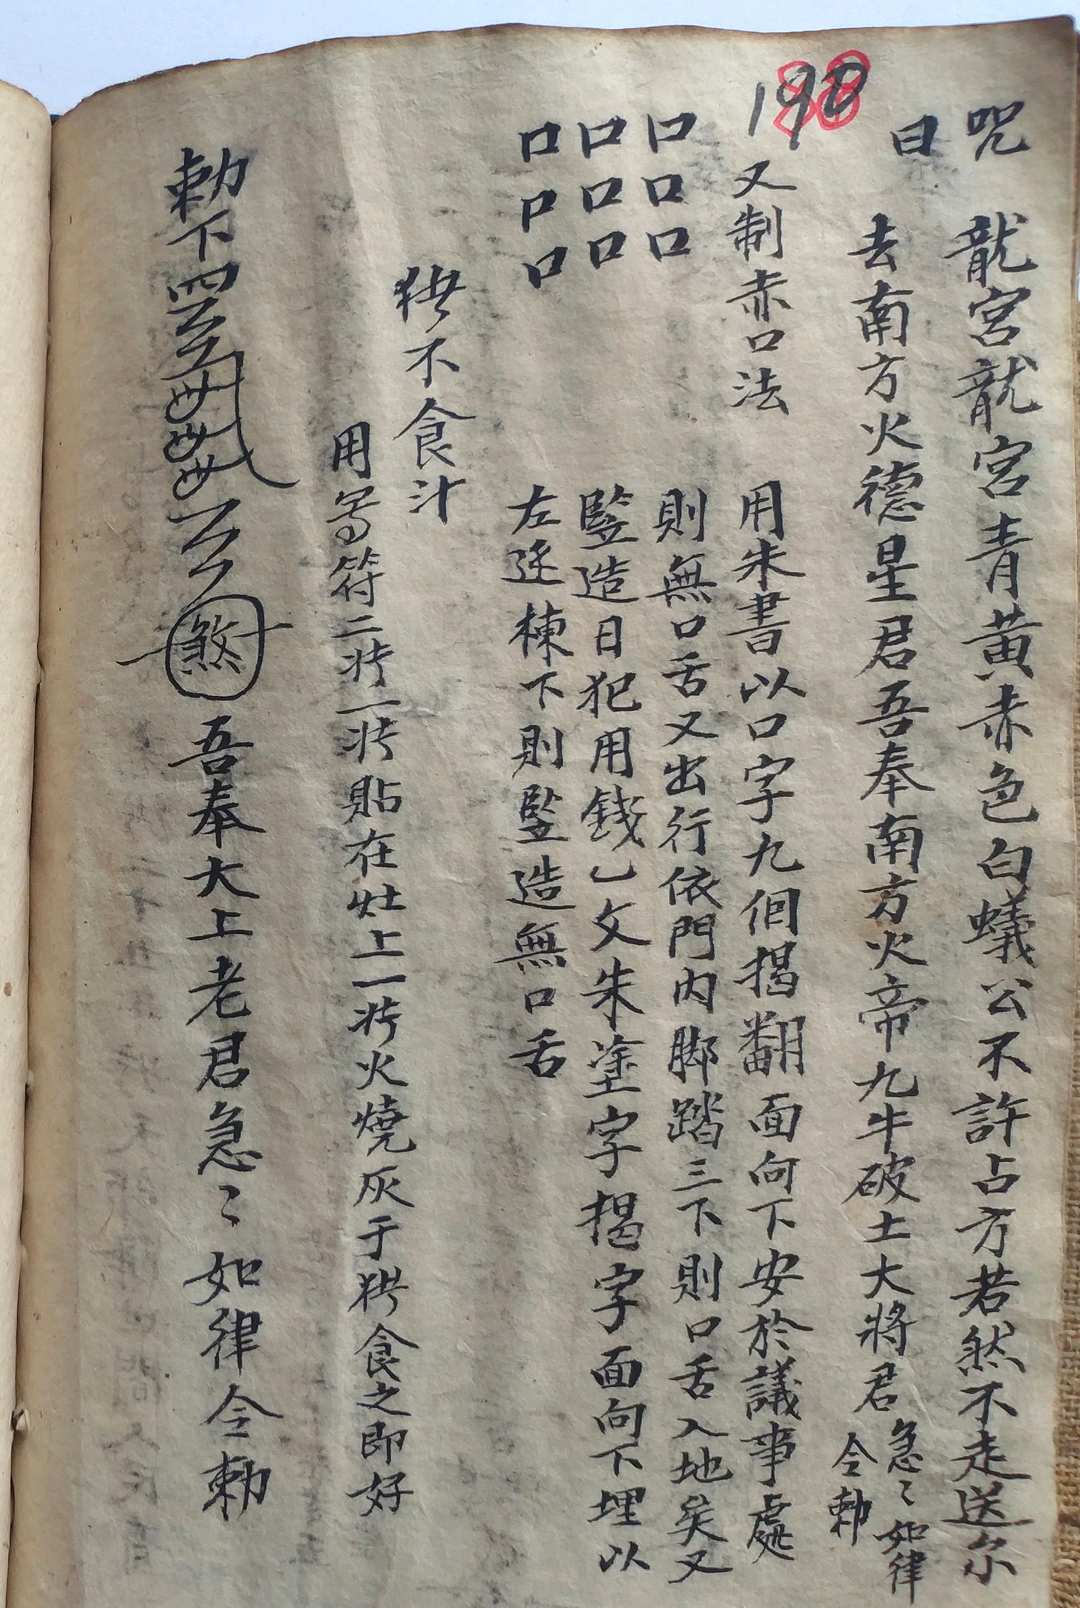 198
咒曰
龍宮龍宮青黃赤色白蟻公不許占方若然不走送尔
去南方火德星君吾奉南方火帝九牛破土大將君急〻如律令勅
又制赤口法
用朱書以口字九個揭翻面向下安於議事處
口口口
則無口舌又出行依門內脚踏三下則口舌入地矣又
口口口
竪造日犯用錢乙文朱塗字揭字面向下埋以
口口口
左逐棟下則竪造無口舌
不食汁
用符二张一张貼在灶上一张火燒灰于食之即好
勅下煞吾奉大上老君急〻如律令勅